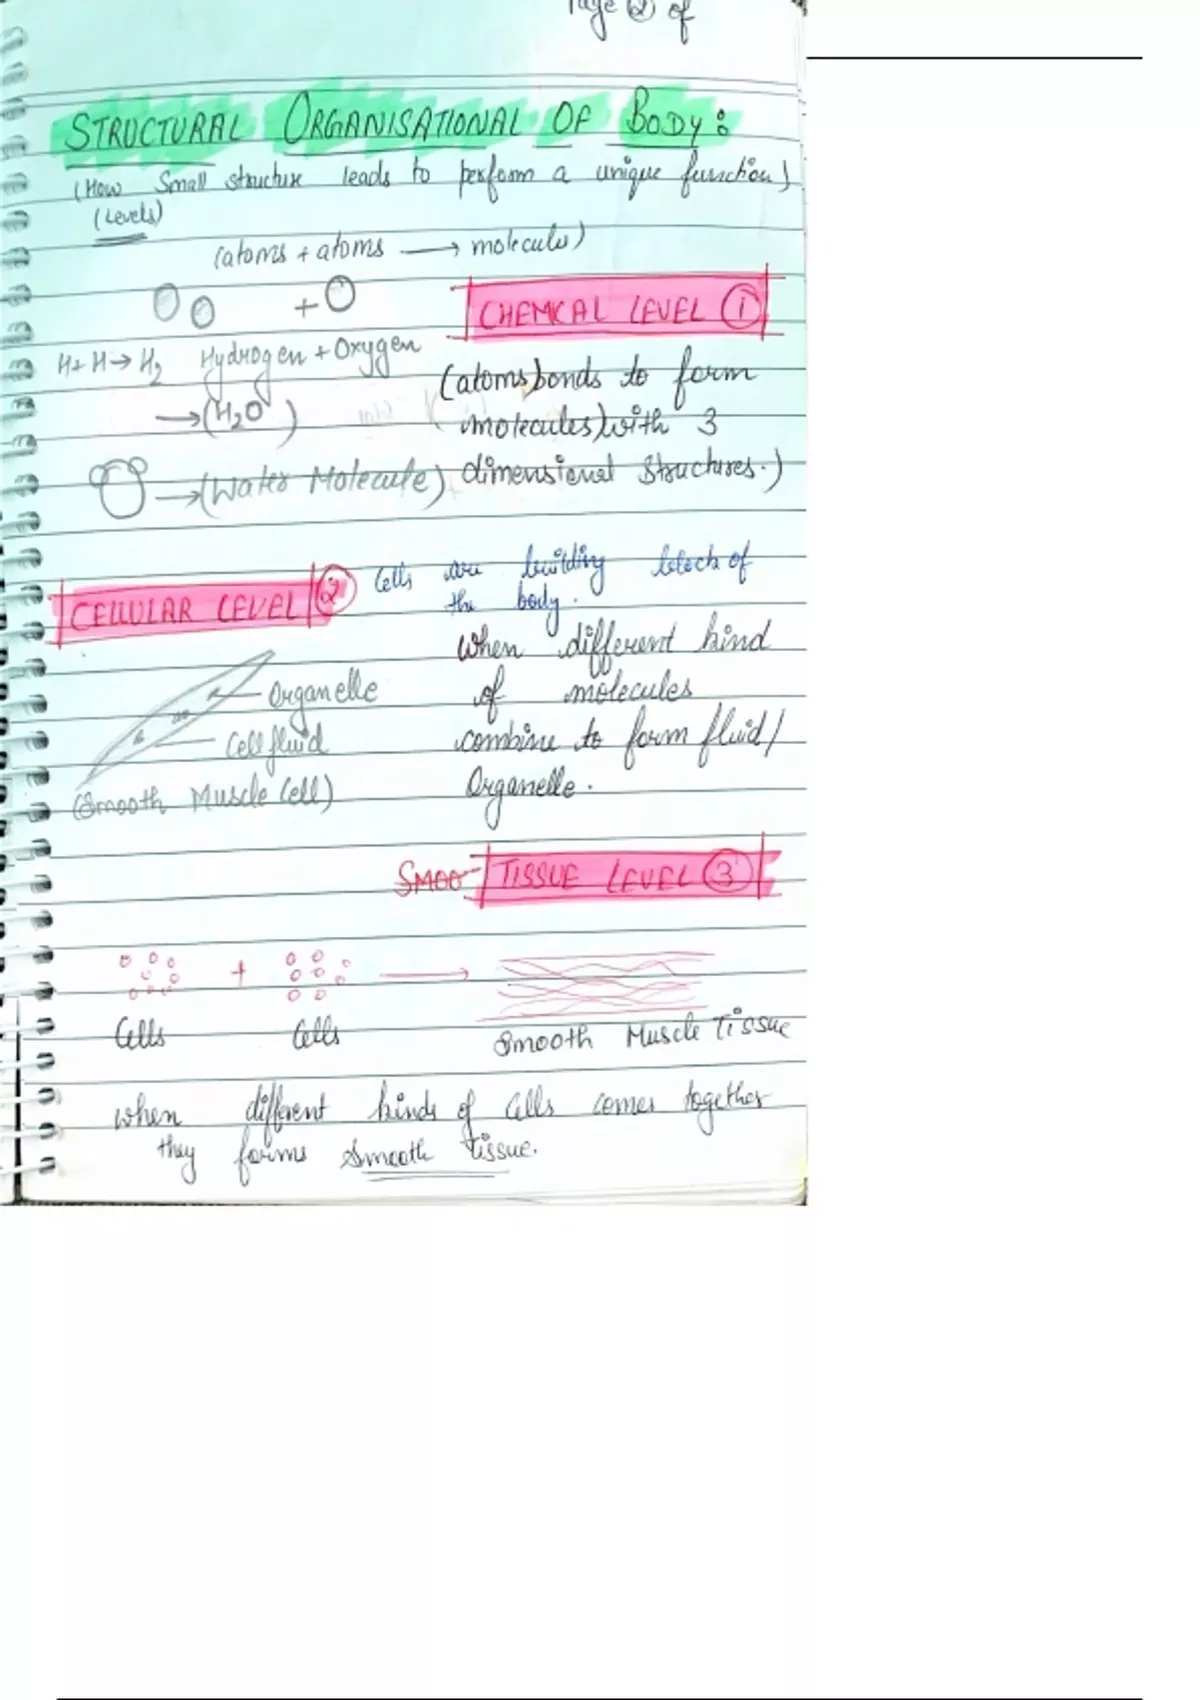 Page ② of
STRUCTURAL ORGANISATIONAL OF BODY:
(How Small structure leads to perform a unique function)
(Levels)
(atoms + atoms → molecule)
+
CHEMICAL LEVEL ①
H + H → H₂ Hydrogen + Oxygen
→ (H₂O)
(atoms bonds to form
molecules) with 3
dimensional structures.)
→ (Water Molecule)
CELLULAR LEVEL ②
Cells are building block of
the body.
When different kind
of molecules
combine to form fluid/
Organelle.
Organelle
Cell fluid
(Smooth Muscle Cell)
Smoo
TISSUE LEVEL ③
+ →
Cells Cells Smooth Muscle Tissue
When different kinds of Cells comes together
they forms Smooth tissue.